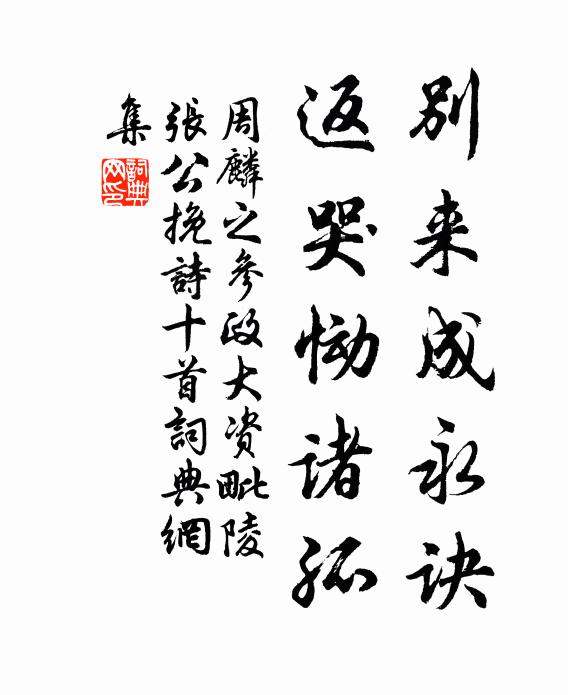 别来成永诀
返哭恸诸孤
周麟之參政大资毗陵
張公挽詩十首詞典網
集
詞典网印